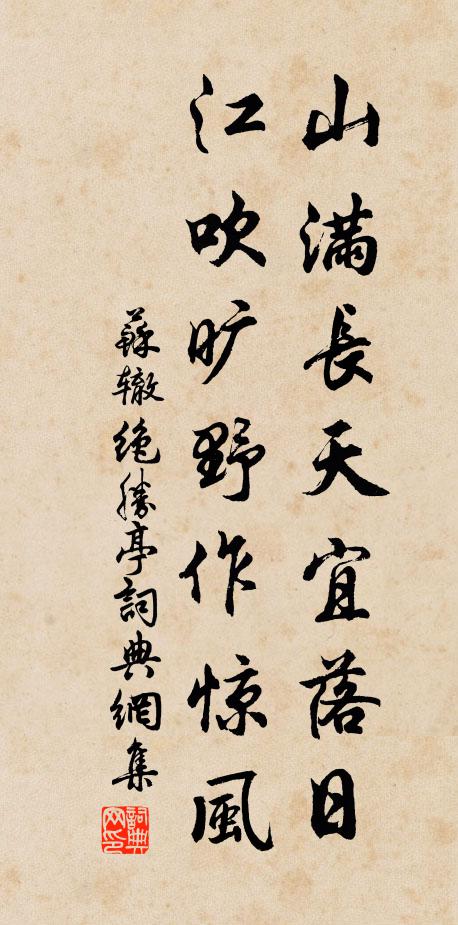 山滿長天宜落日
江吹旷野作惊風
蘇辙絶勝亭詞典網集
詞典
网印